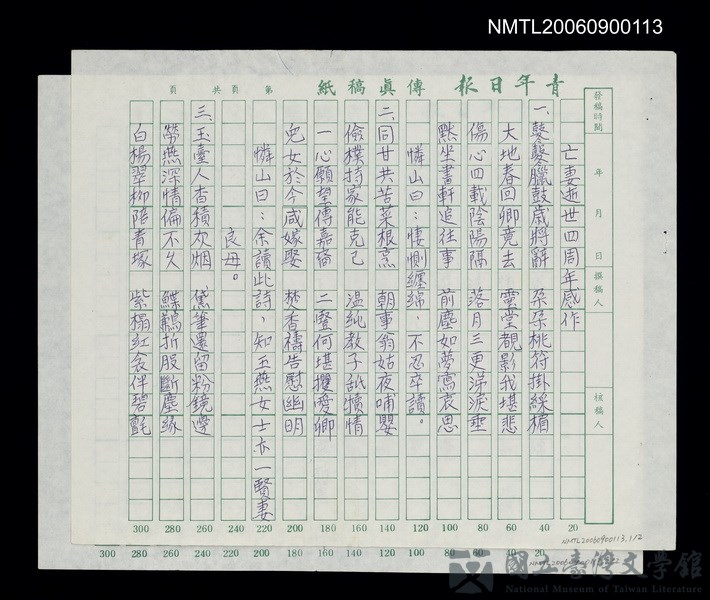 NMTL20060900113
青年日報 傳真稿紙 第 頁共 頁
發稿時間 年 月 日 撰稿人 核稿人
亡妻逝世四周年感作
一、鼕鼕臘鼓歲將辭 朶朶桃符掛綵楣
大地春回卿竟去 靈堂覩影我堪悲
傷心四載陰陽隔 落月三更涕淚垂
默坐書軒追往事 前塵如夢寫哀思
憐山曰：悽惻纏綿，不忍卒讀。
二、同甘共苦菜根烹 朝事翁姑夜哺嬰
儉樸持家能克己 溫純教子舐犢情
一心願望傳嘉裔 二豎何堪攖愛卿
兒女於今咸嫁娶 焚香禱告慰幽明
憐山曰：余讀此詩，知玉燕女士亦一賢妻
良母。
三、玉臺人杳積灰烟 黛筆還留粉鏡邊
勞燕深情偏不久 鰈鶼折股斷塵緣
白楊翠柳陪青塚 紫榻紅衾伴碧氈
300 280 260 240 220 200 180 160 140 120 100 80 60 40 20
NMTL20060900113.1/2
300 280 260 240 220 200 180 160 140 120 100 80 60 40 20
國立臺灣文學館
National Museum of Taiwan Literature